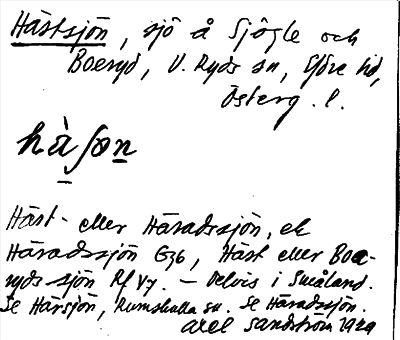 Hästsjön, sjö å Sjögle och
Boeryd, V. Ryds sn, Ydre hd,
Österg. l.
hàſøn
Häst- eller Häradssjön, ek
Häradssjön G36, Häst eller Boe-
ryds-sjön Rf V7. – Delvis i Småland.
Se Härsjön, Rumskulla sn. Se Häradssjön.
Axel Sandström 1929